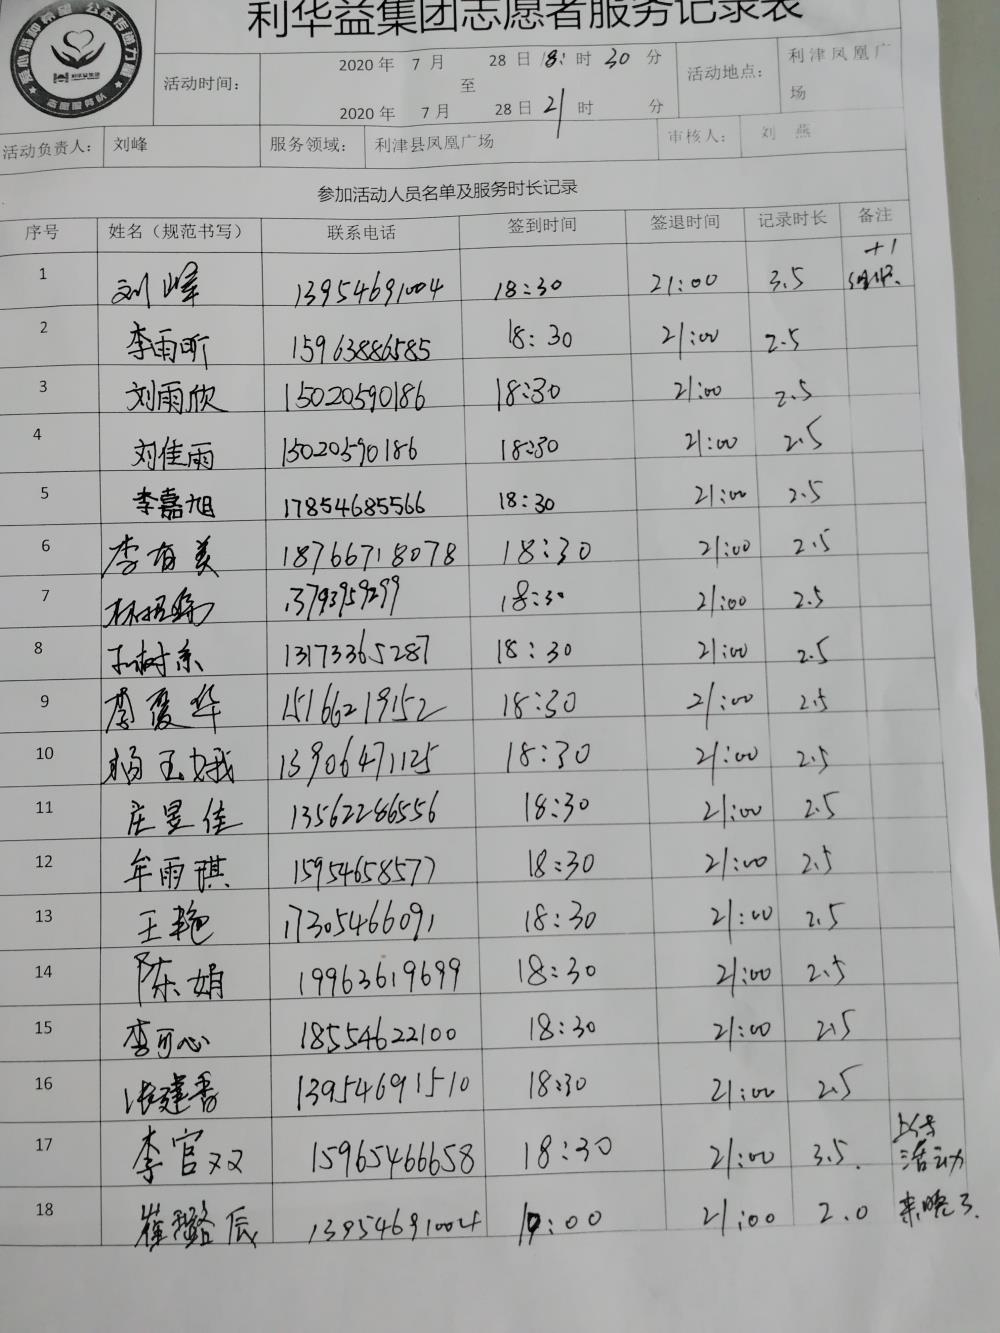 利华益集团志愿者服务记录表
爱心播种希望 公益传递力量
利华益集团
活动时间： 2020 年 7 月 28 日 18: 时 30 分 活动地点： 利津凤凰广场
至
2020 年 7 月 28 日 21 时 分
活动负责人： 刘峰 服务领域： 利津县凤凰广场 审核人： 刘 燕
参加活动人员名单及服务时长记录
序号 姓名（规范书写） 联系电话 签到时间 签退时间 记录时长 备注
1 刘峰 13954691004 18:30 21:00 3.5 +1
2 李雨昕 15963886585 18:30 21:00 2.5
3 刘雨欣 15020590186 18:30 21:00 2.5
4 刘佳雨 15020590186 18:30 21:00 2.5
5 李嘉旭 17854685566 18:30 21:00 2.5
6 李有美 18766718078 18:30 21:00 2.5
7 13793959299 18:30 21:00 2.5
8 13173365287 18:30 21:00 2.5
9 李爱华 15166219152 18:30 21:00 2.5
10 杨玉娥 13906471125 18:30 21:00 2.5
11 庄昱佳 13562286556 18:30 21:00 2.5
12 牟雨琪 15954658577 18:30 21:00 2.5
13 王艳 17305466091 18:30 21:00 2.5
14 陈娟 19963619699 18:30 21:00 2.5
15 李可心 18554622100 18:30 21:00 2.5
16 张建香 13954691510 18:30 21:00 2.5
17 李官双 15965466658 18:30 21:00 3.5. 上传活动
18 崔璐辰 13954691004 19:00 21:00 2.0 来晚了.